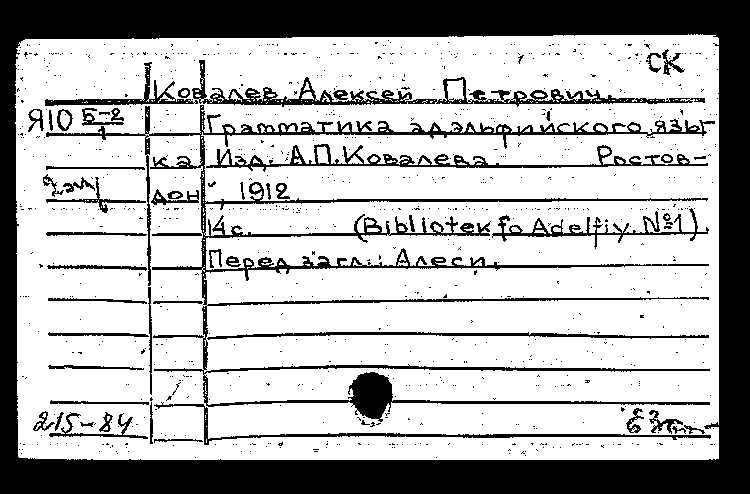 СК
Ковалев, Алексей Петрович.
Я10 Б-2/1
Грамматика адэльфийского язы-
ка Изд. А.П. Ковалева. Ростов-
дон", 1912.
14 с. (Bibliotek fo Adelfiy. №1).
Перед загл.: Алеси.
215-84